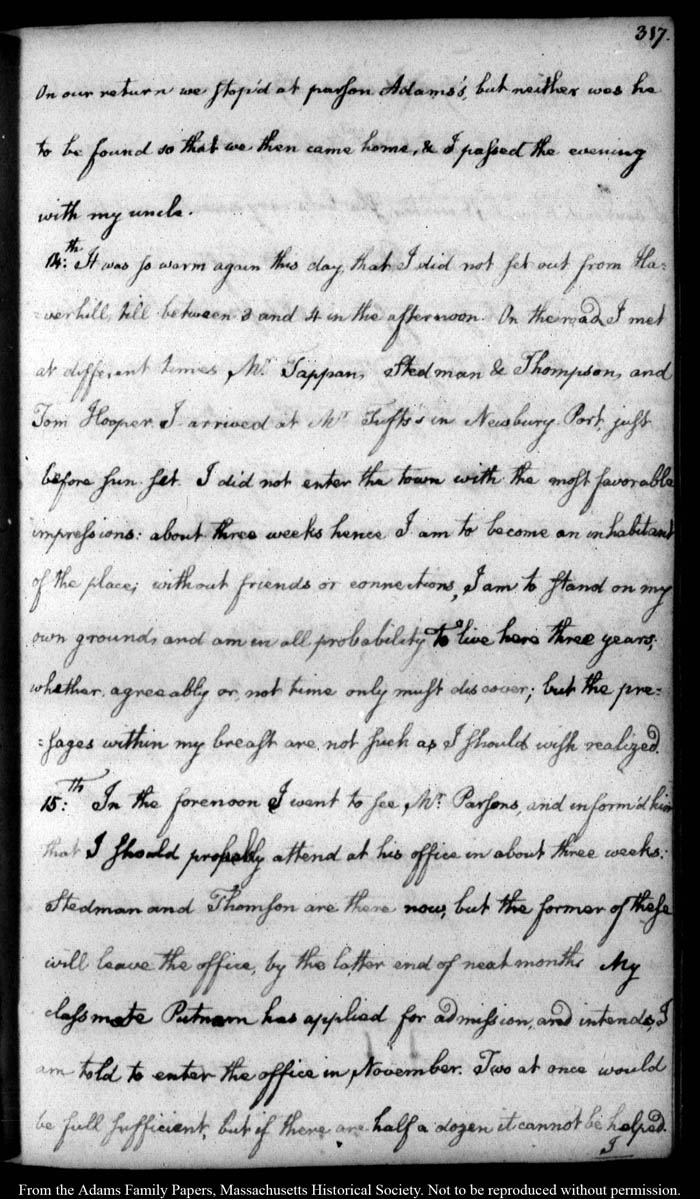 317.
On our return we stop'd at parson Adams's, but neither was he
to be found so that we then came home, & I passed the evening
with my uncle.
14:th It was so warm again this day, that I did not set out from Ha=
=verhill, till between 3 and 4 in the afternoon. On the road I met
at different times, Mr. Tappan, Stedman & Thompson, and
Tom Hooper. I arrived at Mr. Tufts's in Newbury-Port, just
before sun set. I did not enter the town with the most favorable
impressions: about three weeks hence I am to become an inhabitant
of the place; without friends or connections, I am to stand on my
own ground, and am in all probability to live here three years;
whether agreeably or not time only must discover; but the pre=
=sages within my breast are not such as I should wish realized.
15:th In the forenoon I went to see Mr. Parsons, and inform'd him
that I should probably attend at his office in about three weeks:
Stedman and Thomson are there now, but the former of these
will leave the office, by the latter end of next month. My
classmate Putnam has applied for admission, and intends, I
am told to enter the office in November. Two at once would
be full sufficient, but if there are half a dozen it cannot be helped.
I
From the Adams Family Papers, Massachusetts Historical Society. Not to be reproduced without permission.